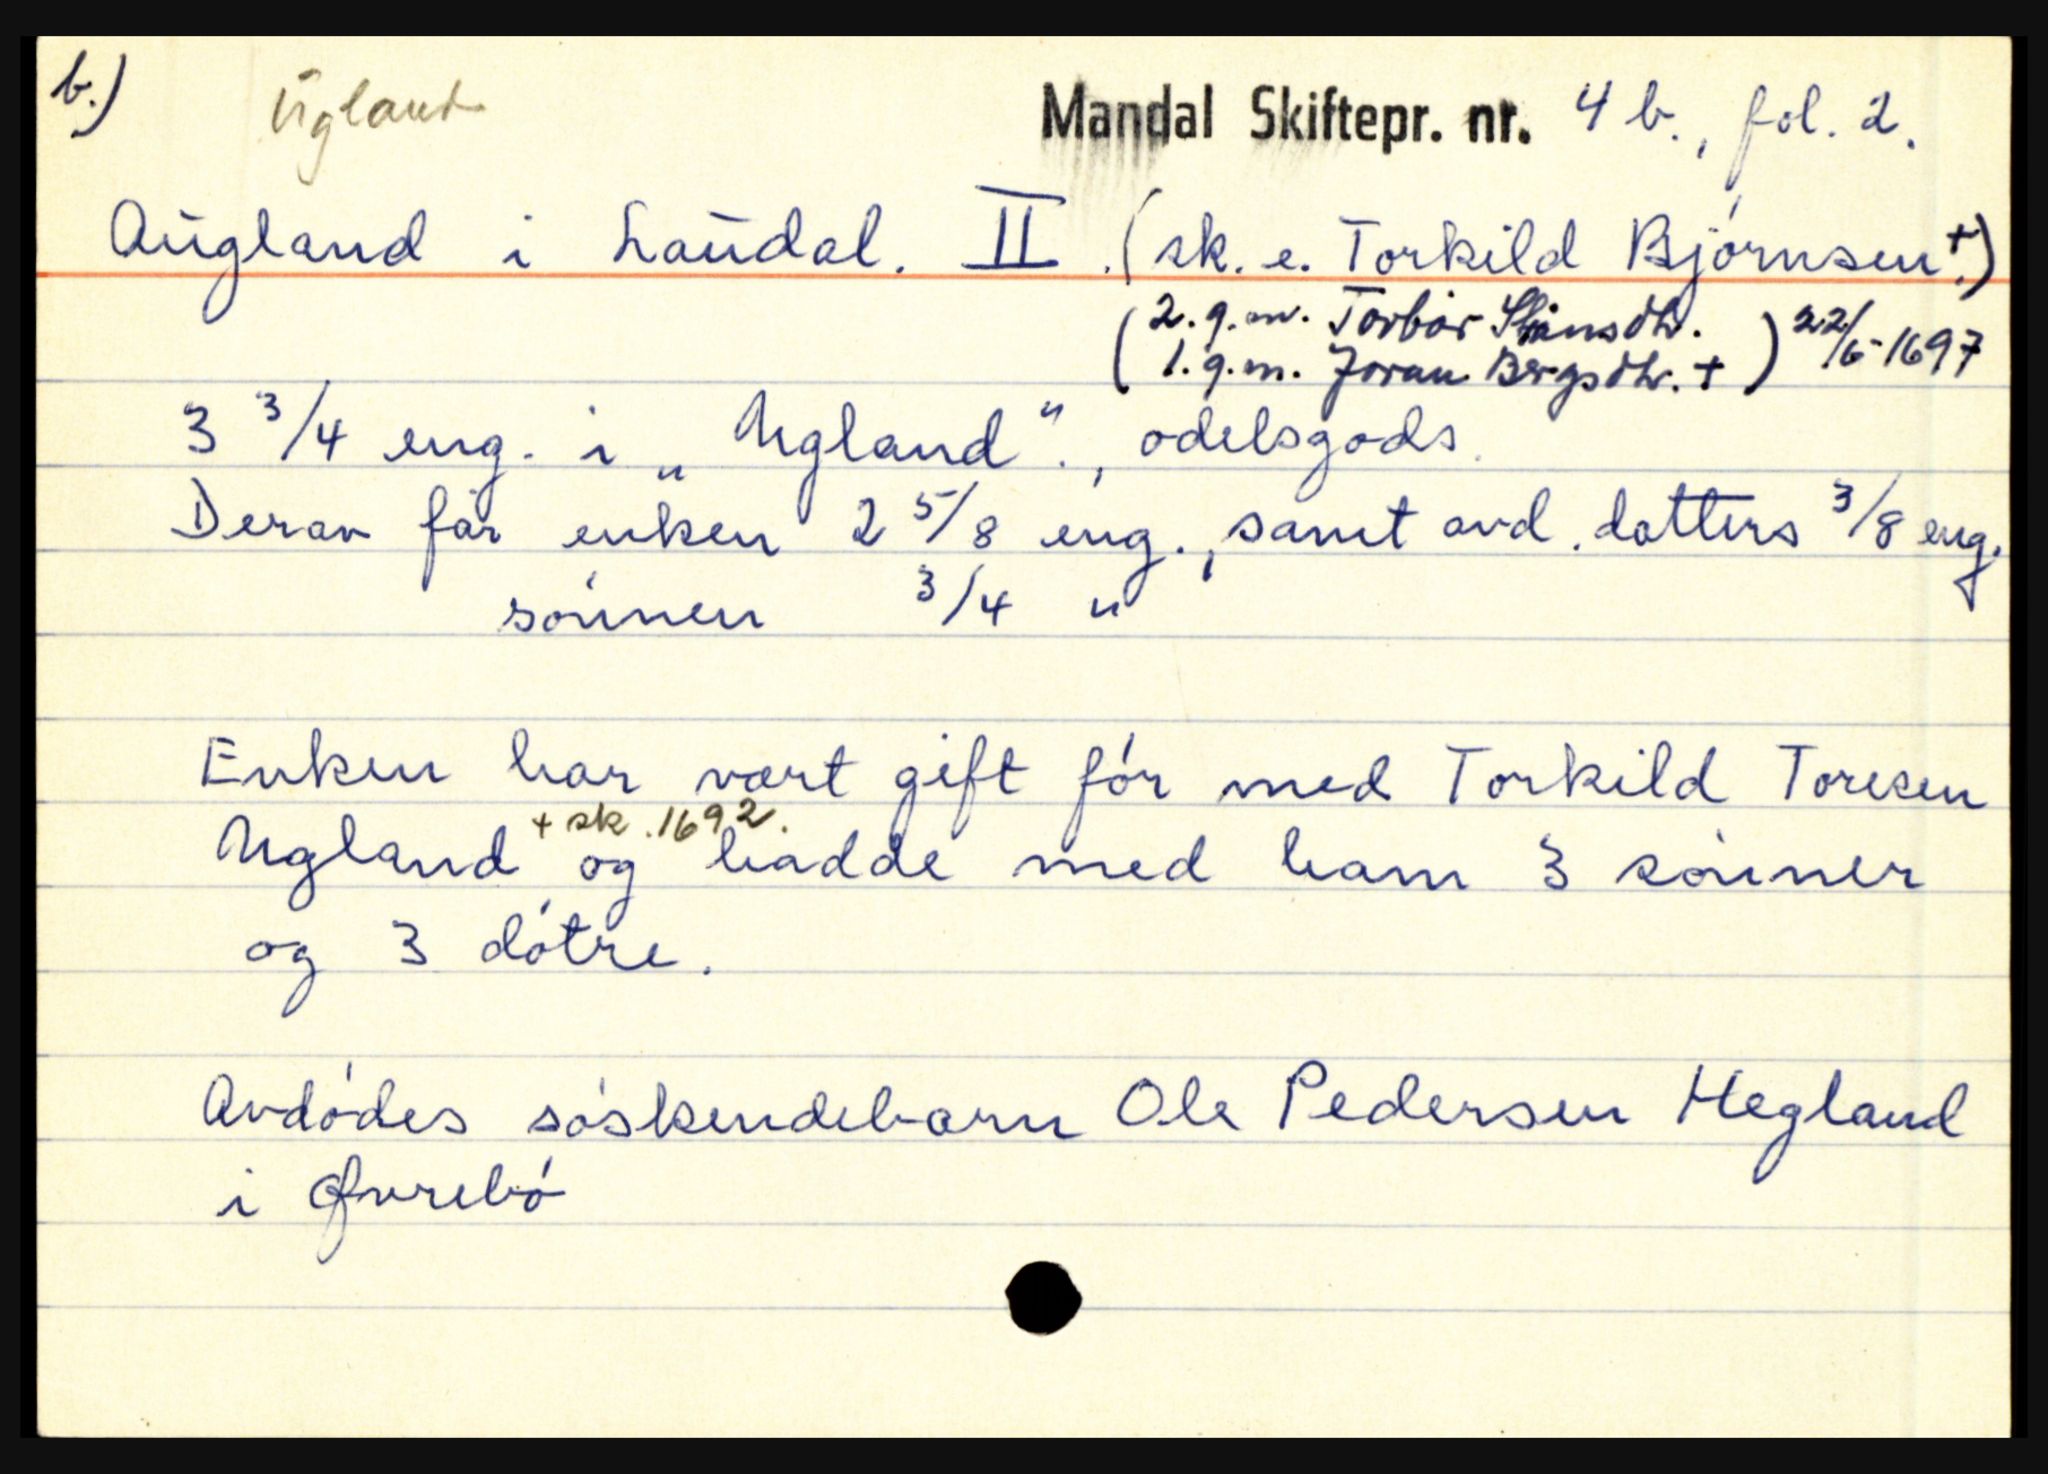 b.) Ugland Mandal Skiftepr. nr. 4 b., fol. 2.
Augland i Laudal. II. (sk. e. Torkild Bjórnsen +.)
( 2. g. m. Torbor dtr. ) 22/6-1697
( 1. g. m. Joran Bergsdtr. + )
3 3/4 eng. i „Ugland"., odelsgods.
Derav får enken 2 5/8 eng., samt avd. datters 3/8 eng.
sónnen 3/4 "
Enken har vært gift fór med Torkild Toresen
+ sk. 1692.
Ugland og hadde med ham 3 sónner
og 3 dótre.
Avdódes sóskendebarn Ole Pedersen Hegland
i Øvrebó